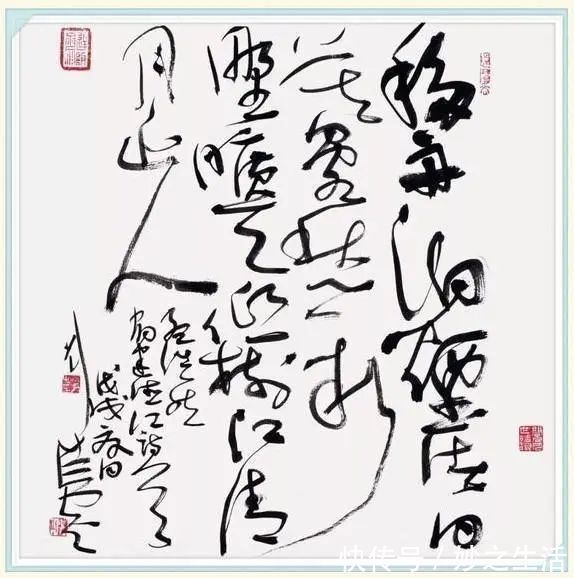 移舟泊煙渚日
暮客愁新
野曠天低樹江清
月近人
孟浩然
宿建德江詩
戊戌日
快传号 / 妙之生活